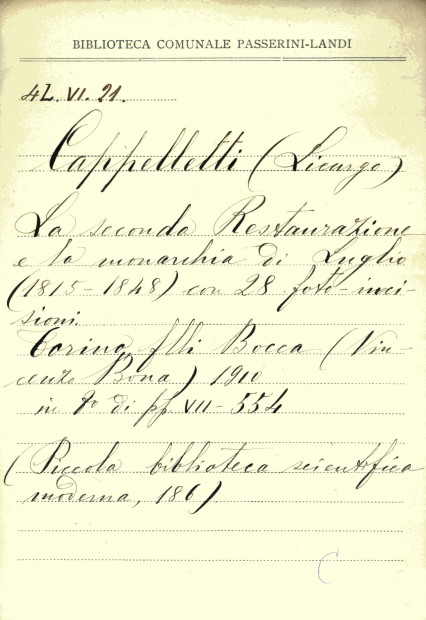 BIBLIOTECA COMUNALE PASSERINI-LANDI
4L. VI. 21.
Cappelletti (Licurgo)
La seconda Restaurazione
e la monarchia di Luglio
(1815-1848) con 28 foto-inci-
sioni.
Torino, flli Bocca (Vin-
cenzo Bona) 1910
in 8º di pp. VII-554
(Piccola biblioteca scientifica
moderna, 186)
C